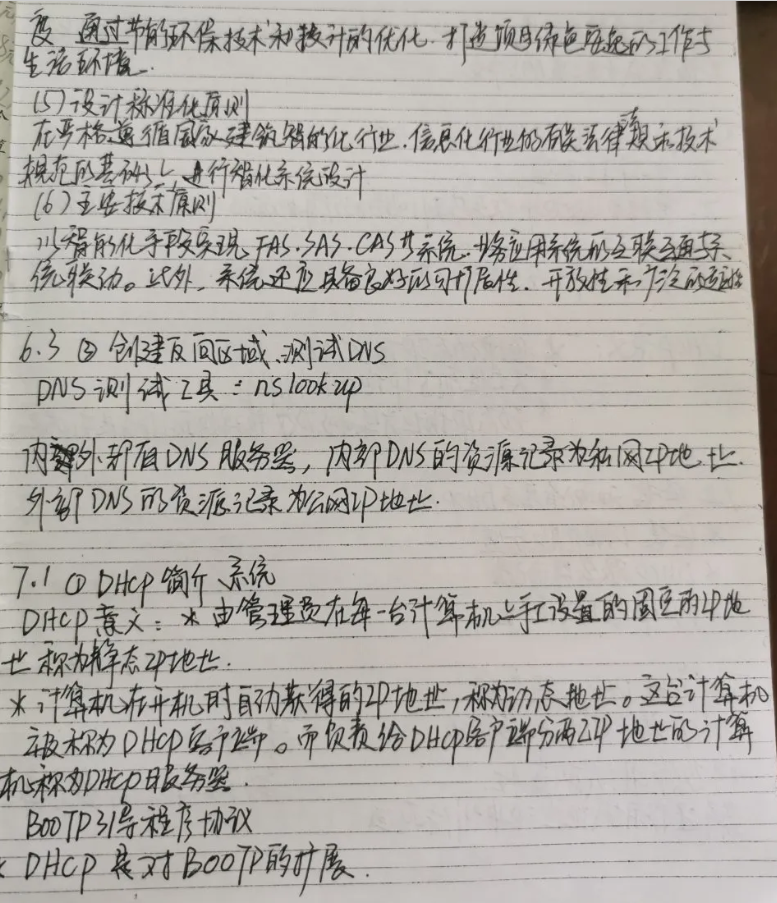 度 通过节能环保技术和设计的优化.打造项目绿色舒适的工作与
生活环境.
(5)设计标准化原则
在严格遵循国家建筑智能化行业.信息化行业的有关法律规和技术
规范的基础上,进行智化系统设计
(6)主要技术原则
以智能化手段实现FAS.SAS.CAS等系统.业务应用系统的互联互通与系
统联动。此外,系统还应具备良好的可扩展性.开放性和
6.3 ② 创建反向区域、测试DNS
DNS测试工具:nslookup
内部外部有DNS服务器,内部DNS的资源记录为私网IP地址.
外部DNS的资源记录为公网IP地址.
7.1 ① DHCP简介、系统
DHCP意义:* 由管理员在每一台计算机上手工设置的固定的IP地
址称为静态IP地址.
* 计算机在开机时自动获得的IP地址,称为动态地址。这台计算机
被称为DHCP客户端。而负责给DHCP客户端分配IP地址的计算
机称为DHCP服务器.
BOOTP引导程序协议
* DHCP是对BOOTP的扩展.